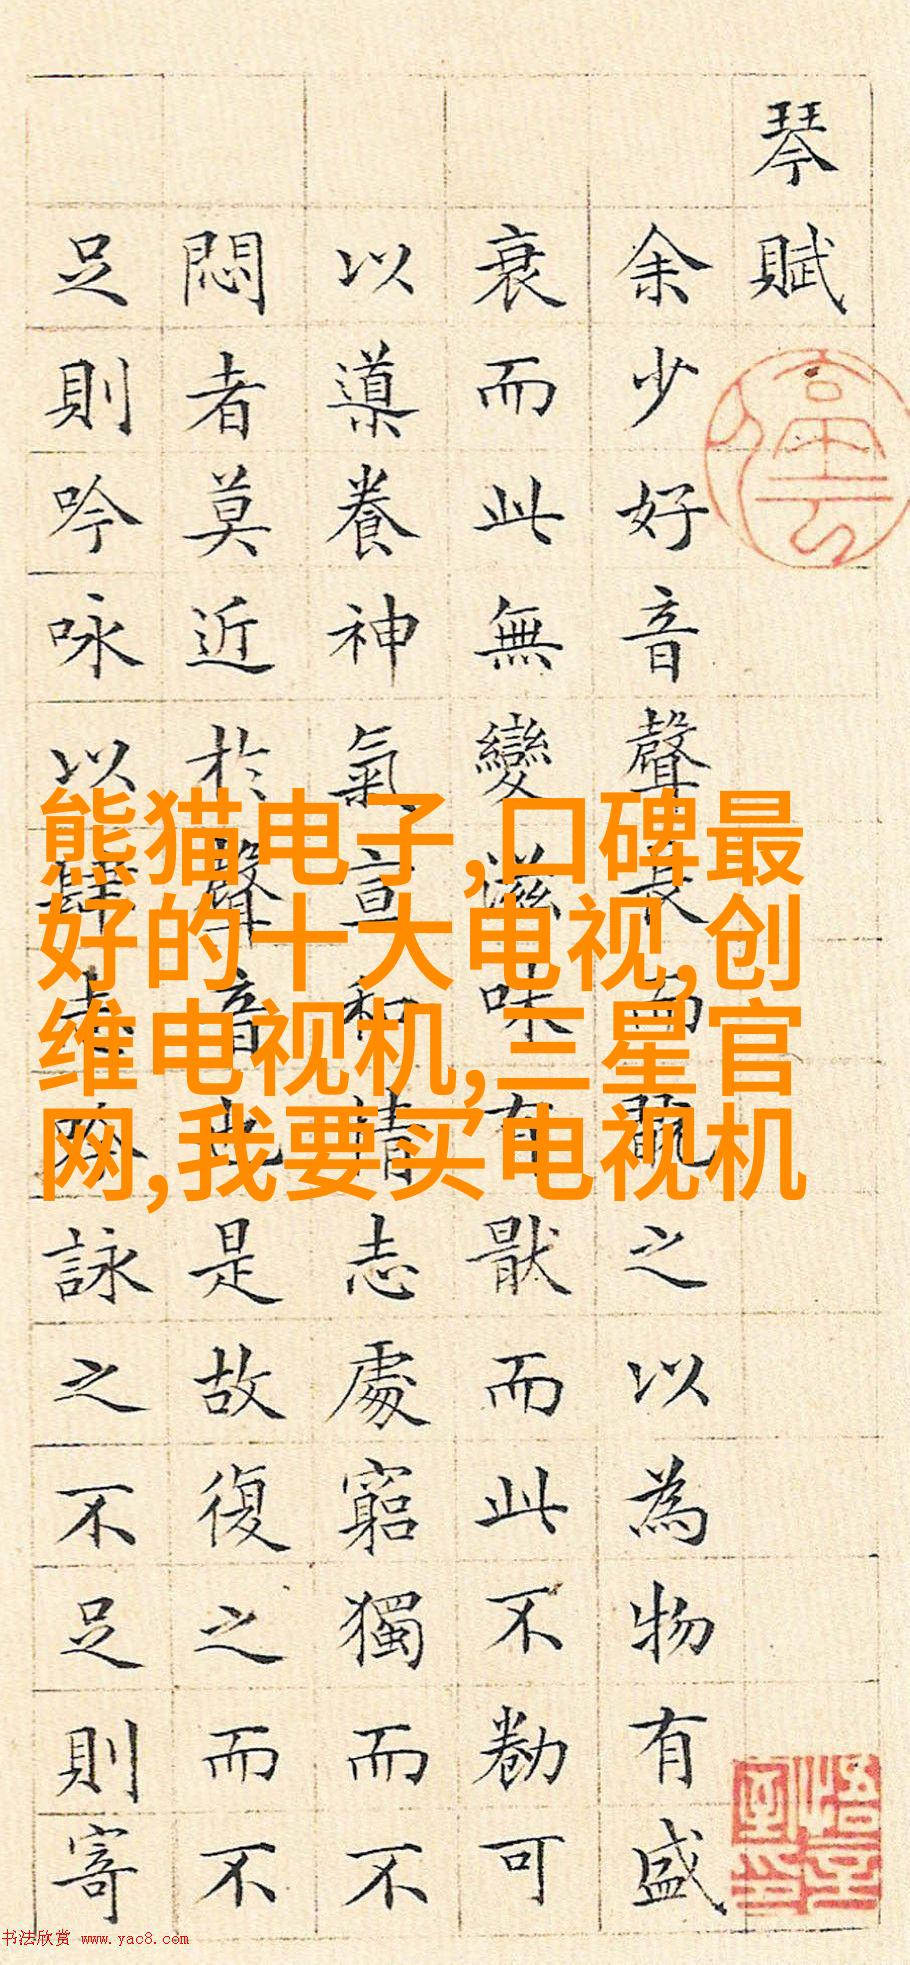 琴賦
余少好音聲長而翫之以為物有盛
衰而此無變滋味有猒而此不勌可
以導養神氣宣和情志處窮獨而不
悶者莫近於聲音也是故復之而不
足則吟咏以肆志吟詠之不足則寄
熊猫电子,口碑最
好的十大电视,创
维电视机,三星官
网,我要买电视机
书法欣赏 www.yac8.com